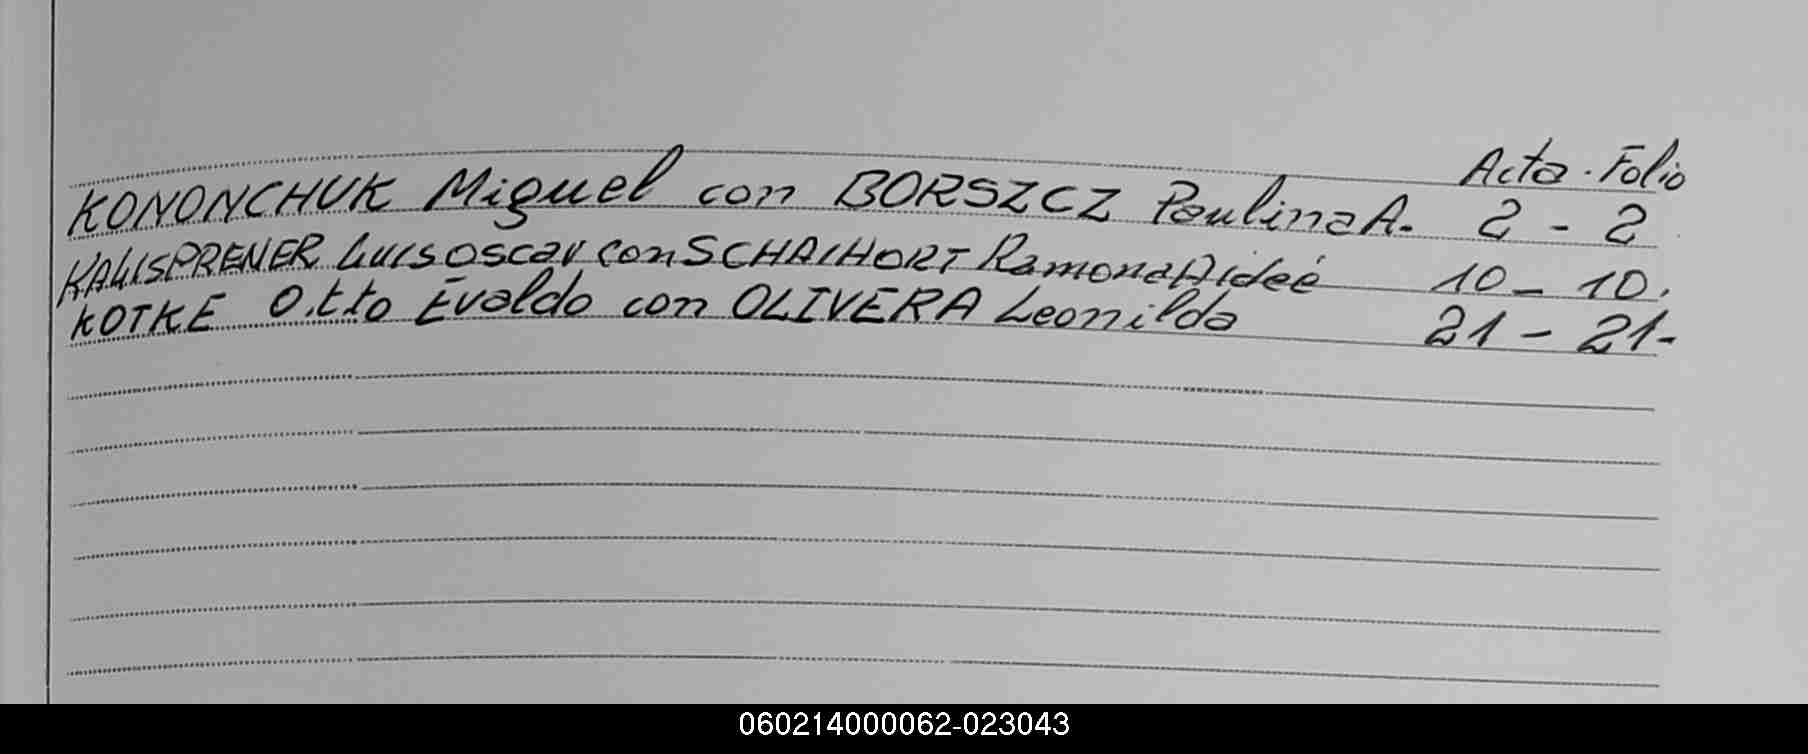 Acta . Folio
KONONCHUK Miguel con BORSZCZ Paulina A. 2 - 2
KALISPRENER Luis Oscar con SCHAIHORT Ramona Aideé 10 - 10.
KOTKE Otto Evaldo con OLIVERA Leonilda 21 - 21-
060214000062-023043